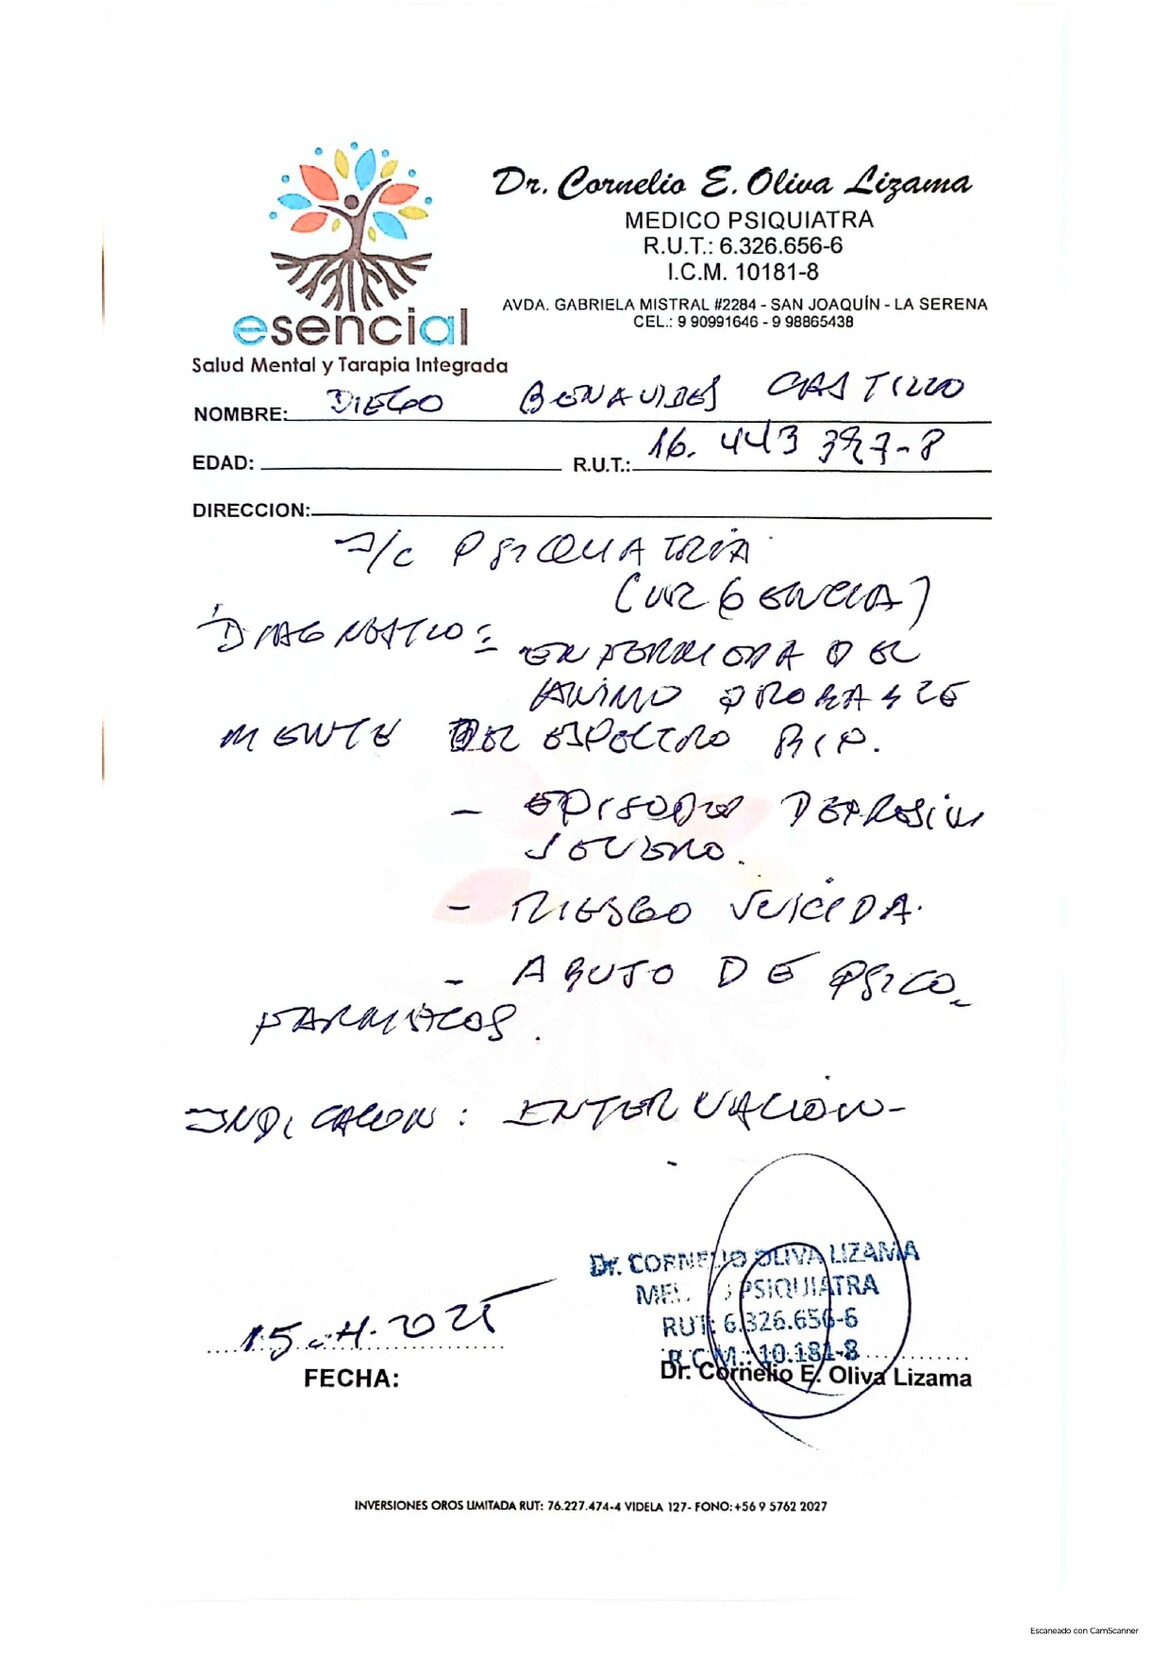 Dr. Cornelio E. Oliva Lizama
MEDICO PSIQUIATRA
R.U.T.: 6.326.656-6
I.C.M. 10181-8
AVDA. GABRIELA MISTRAL #2284 - SAN JOAQUÍN - LA SERENA
CEL.: 9 90991646 - 9 98865438
esencial
Salud Mental y Tarapia Integrada
NOMBRE: DIEGO BENAVIDES CASTILLO
EDAD: R.U.T.: 16.443 397-8
DIRECCION:
I/C PSIQUIATRIA
(URGENCIA)
DIAGNOSTICO: ENFERMEDAD DEL
ANIMO PROBABLE
MENTE DEL ESPECTRO BIP.
- EPISODIO DEPRESIVO
SEVERO.
- RIESGO SUICIDA.
- ABUSO DE PSICO-
FARMACOS.
INDICACION: INTERNACIÓN-
Dr. CORNELIO OLIVA LIZAMA
PSIQUIATRA
RUT: 6.326.656-6
R.C.M.: 10.181-8
15 2025
FECHA:
Dr. Cornelio E. Oliva Lizama
INVERSIONES OROS LIMITADA RUT: 76.227.474-4 VIDELA 127- FONO: +56 9 5762 2027
Escaneado con CamScanner